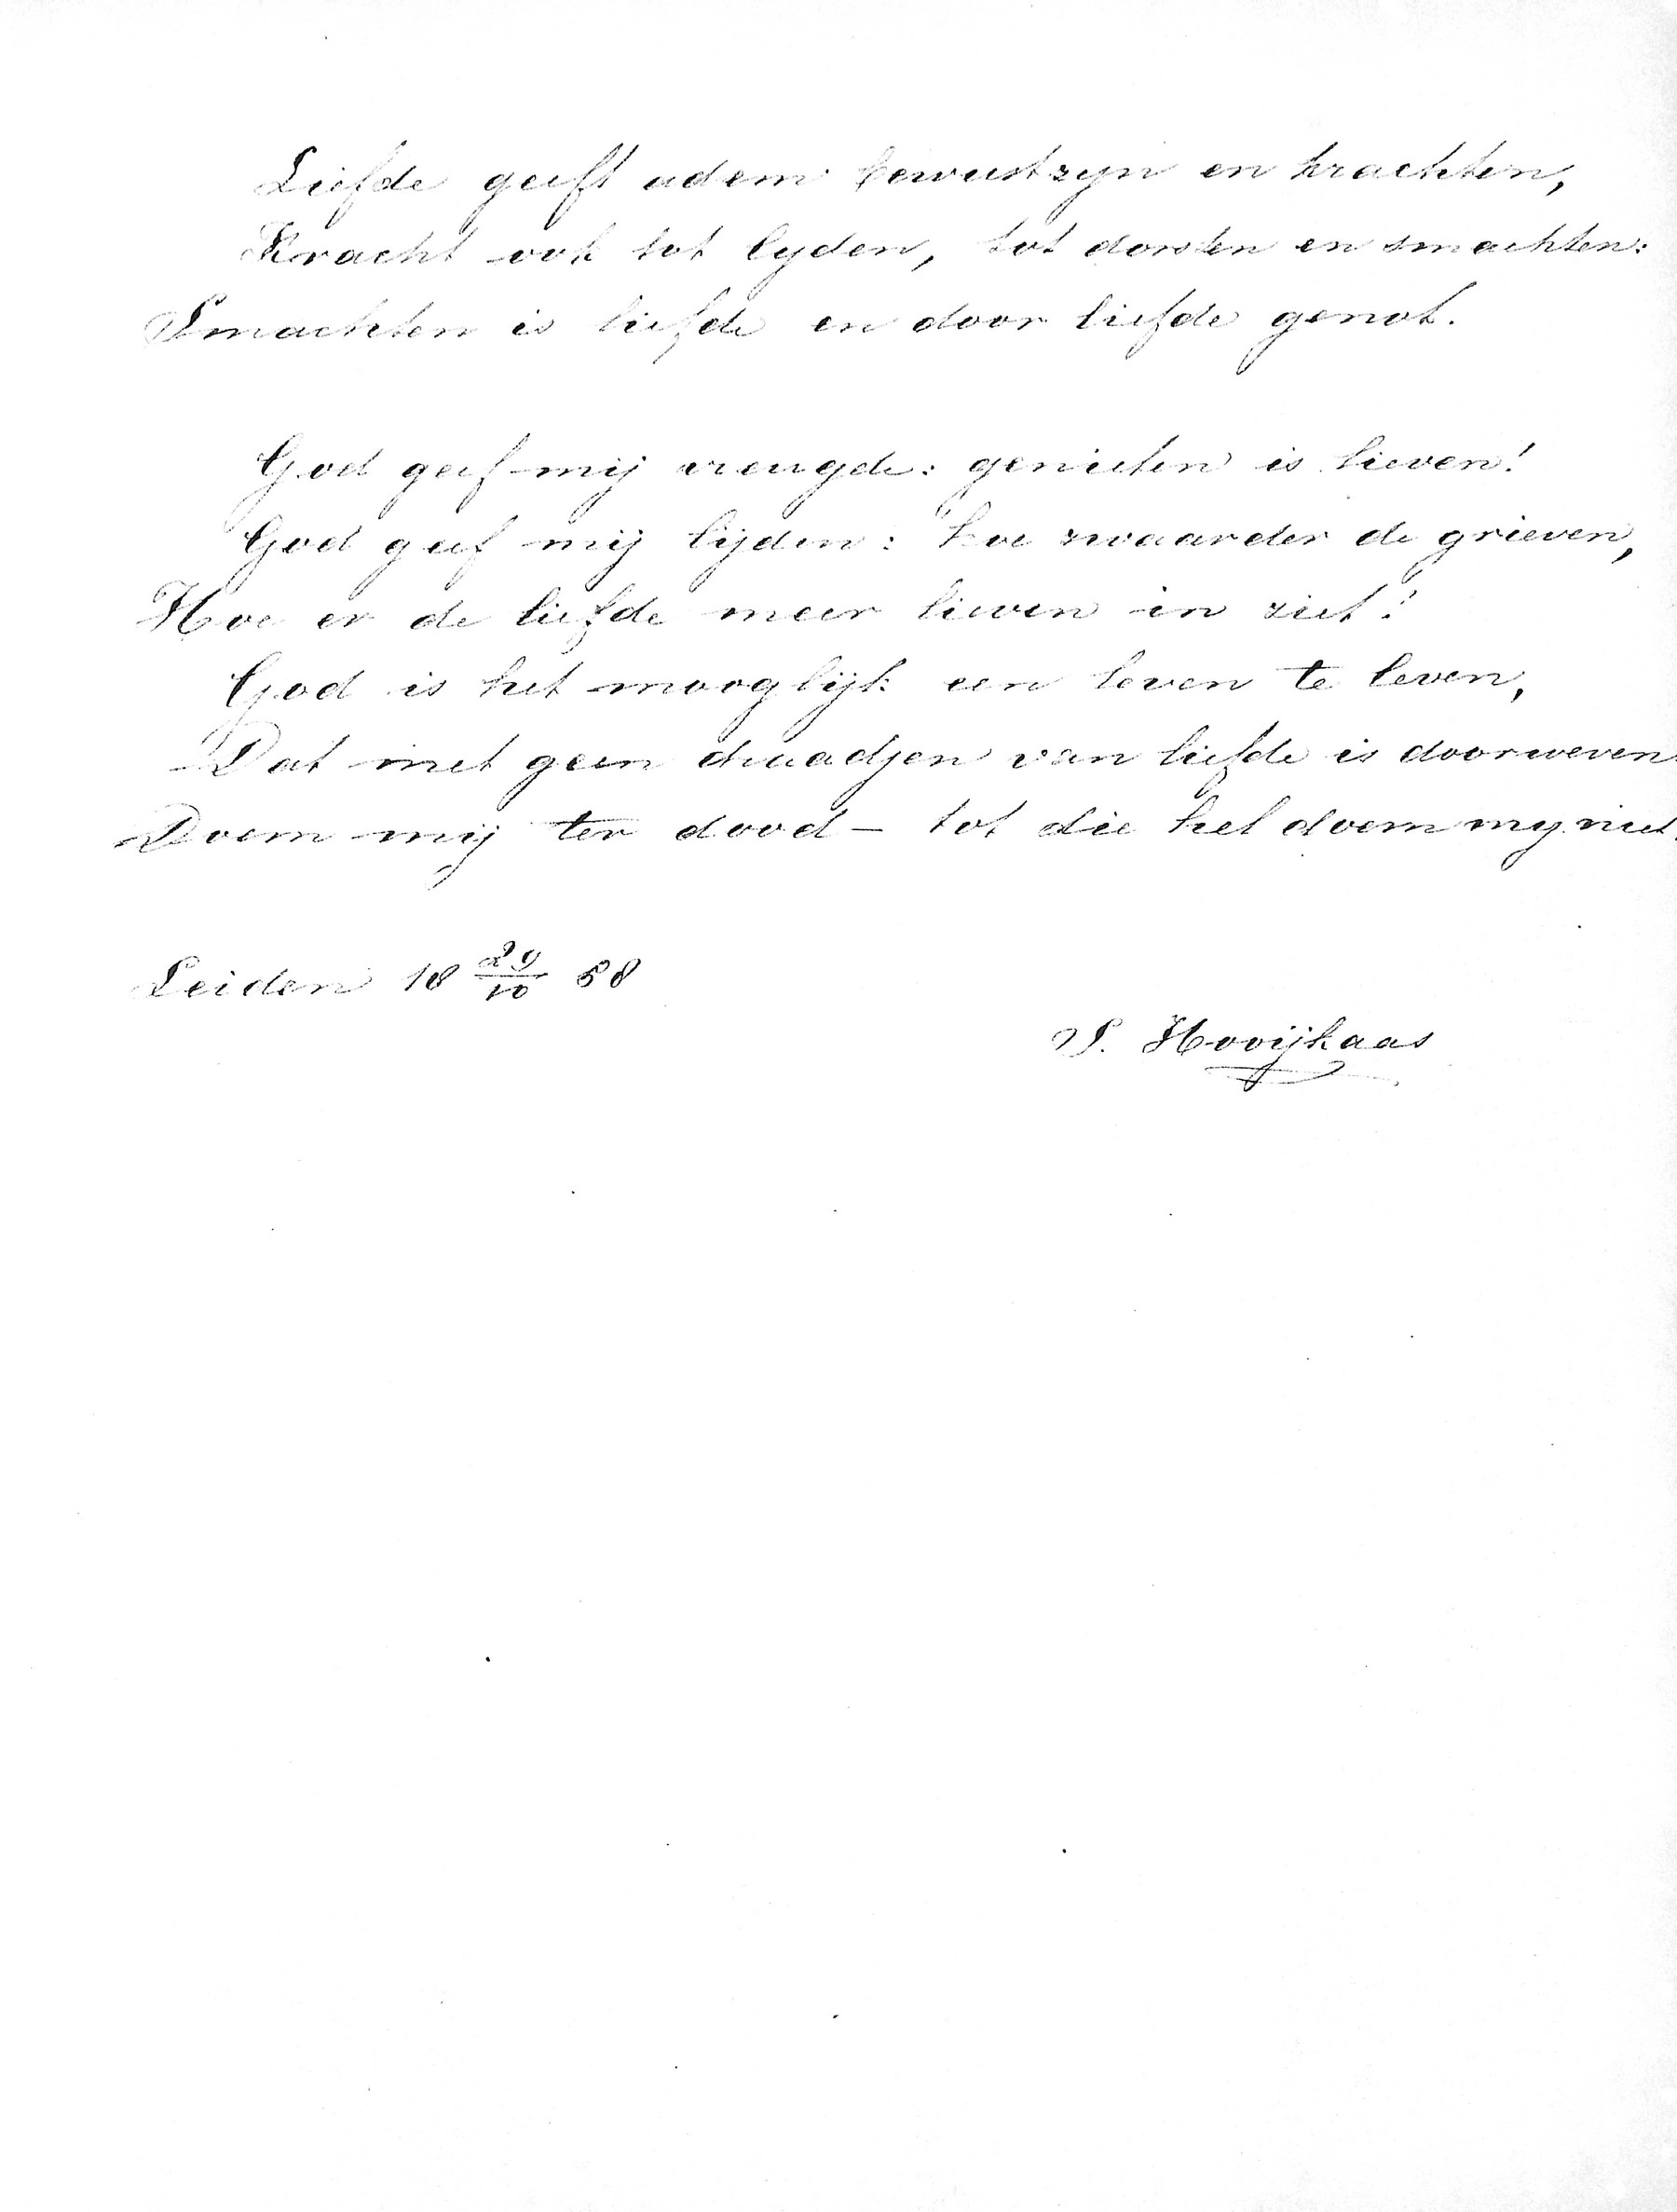 Liefde geeft adem bewustzyn en krachten,
Kracht ook tot lyden, tot dorsten en smachten:
Smachten is liefde en door liefde genot.
God geef mij vreugde: genieten is lieven!
God geef mij lijden: hoe zwaarder de grieven,
Hoe er de liefde meer lieven in ziet!
God is het mooglijk een leven te leven,
Dat met geen draadjen van liefde is doorweven.
Doem mij ter dood – tot die hel doem my niet.
Leiden 18 29/10 58
P. Hooijkaas